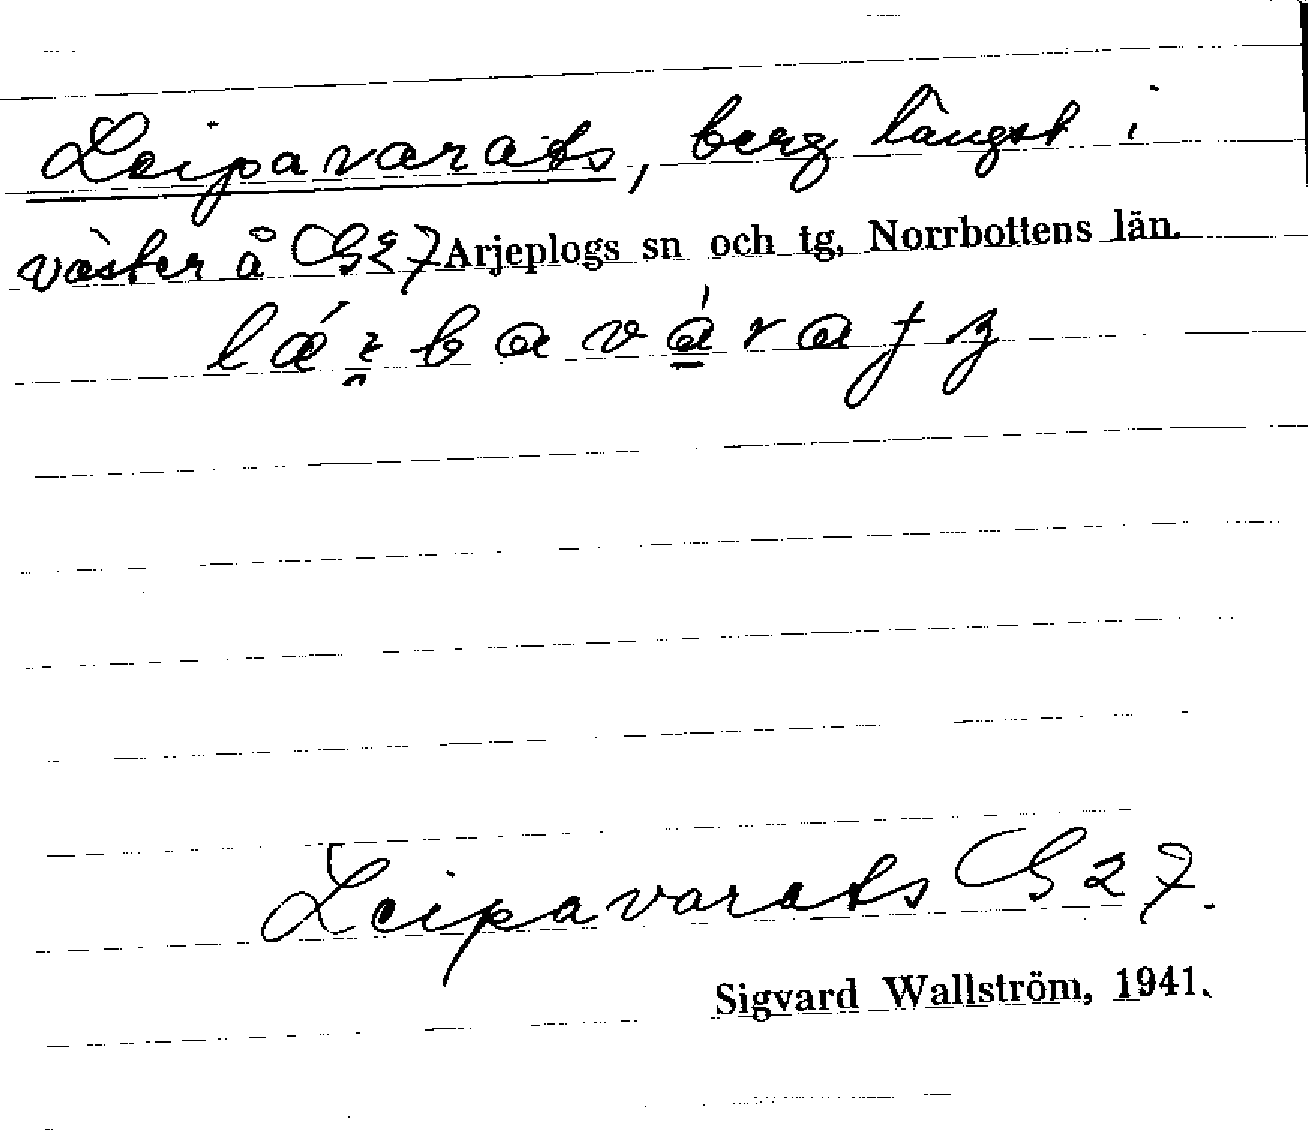 Leipavarats, berg längst i
väster å G27 Arjeplogs sn och tg, Norrbottens län.
Leipavarats G 27.
Sigvard Wallström, 1941.